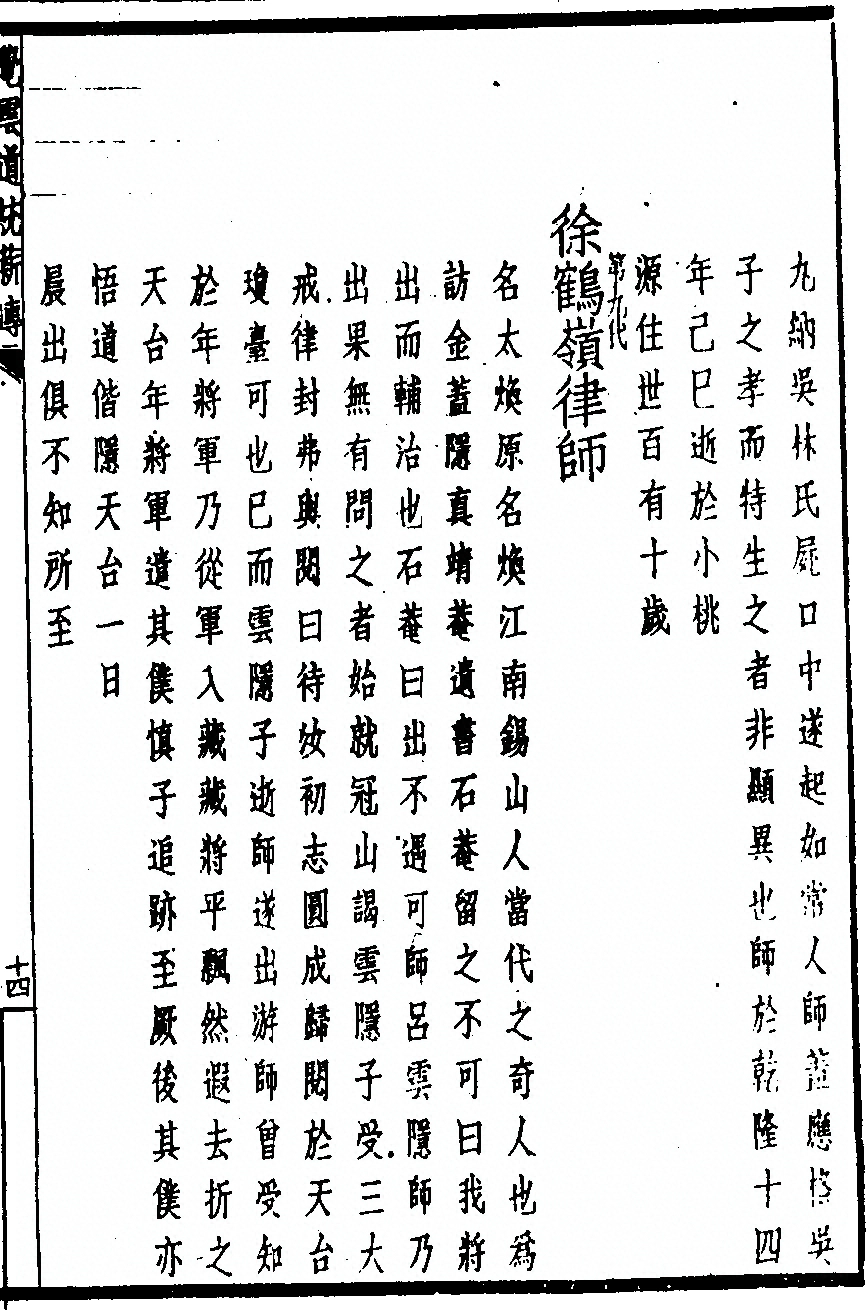 九納吳林氏屍口中遂起如常人師蓋應格吳
子之孝而特生之者非顯異也師於乾隆十四
年己巳逝於小桃
源住世百有十歲
第九代
徐鶴嶺律師
名太煥原名煥江南錫山人當代之奇人也為
訪金蓋隱真靖菴遺書石菴留之不可曰我將
出而輔治也石菴曰出不遇可師呂雲隱師乃
出果無有問之者始就冠山謁雲隱子受三大
戒律封弗與閱曰待汝初志圓成歸閱於天台
瓊臺可也已而雲隱子逝師遂出游師曾受知
於年將軍乃從軍入藏藏將平飄然遐去折之
天台年將軍遣其僕慎子追跡至厥後其僕亦
悟道偕隱天台一日
晨出俱不知所至
覺雲道統薪傳
十四